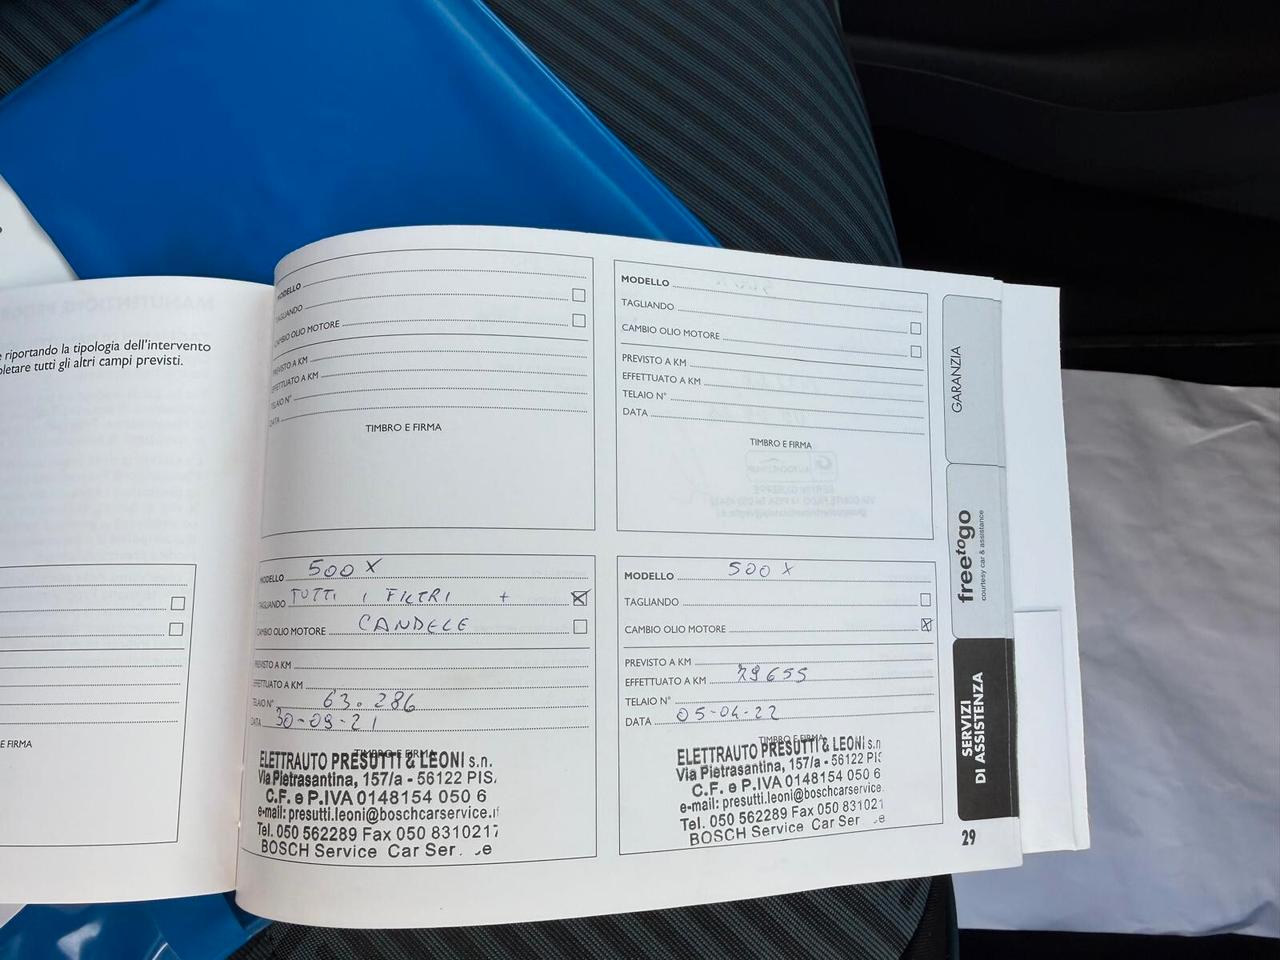 e riportando la tipologia dell'intervento
pletare tutti gli altri campi previsti.
E FIRMA
MODELLO
TAGLIANDO
CAMBIO OLIO MOTORE
PREVISTO A KM
EFFETTUATO A KM
TELAIO N°
DATA
TIMBRO E FIRMA
MODELLO
TAGLIANDO
CAMBIO OLIO MOTORE
PREVISTO A KM
EFFETTUATO A KM
TELAIO N°
DATA
TIMBRO E FIRMA
MODELLO 500 X
TAGLIANDO TUTTI I FILTRI +
CAMBIO OLIO MOTORE CANDELE
PREVISTO A KM
EFFETTUATO A KM
TELAIO N° 63.286
DATA 30-09-21
TIMBRO E FIRMA
ELETTRAUTO PRESUTTI & LEONI s.n.
Via Pietrasantina, 157/a - 56122 PIS.
C.F. e P.IVA 0148154 050 6
e-mail: presutti.leoni@boschcarservice.it
Tel. 050 562289 Fax 050 8310217
BOSCH Service Car Ser e
MODELLO 500 X
TAGLIANDO
CAMBIO OLIO MOTORE
PREVISTO A KM
EFFETTUATO A KM 79655
TELAIO N°
DATA 05-04-22
TIMBRO E FIRMA
ELETTRAUTO PRESUTTI & LEONI s.n
Via Pietrasantina, 157/a - 56122 PIS
C.F. e P.IVA 0148154 050 6
e-mail: presutti.leoni@boschcarservice.
Tel. 050 562289 Fax 050 831021
BOSCH Service Car Ser e
GARANZIA
freetogo
courtesy car & assistance
SERVIZI
DI ASSISTENZA
29